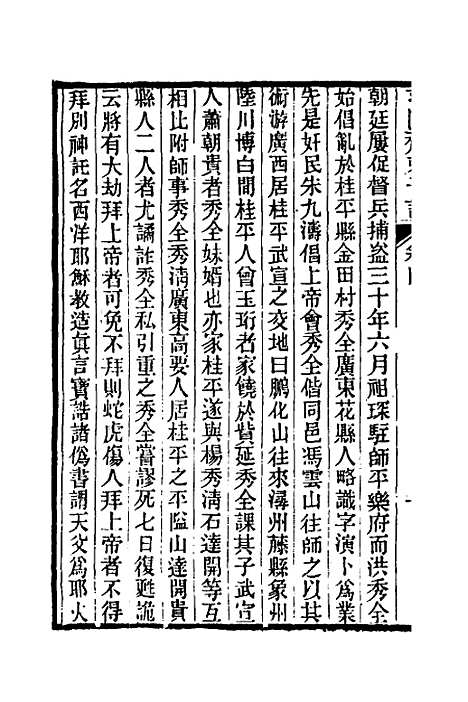 朝廷屢促督兵捕盜三十年六月祖琛駐師平樂府而洪秀全
始倡亂於桂平縣金田村秀全廣東花縣人略識字演卜為業
先是奸民朱九濤倡上帝會秀全偕同邑馮雲山往師之以其
術游廣西居桂平武宣之交地曰鵬化山往來潯州藤縣象州
陸川博白間桂平人曾玉珩者家饒於貲延秀全課其子武宣
人蕭朝貴者秀全妹婿也亦家桂平遂與楊秀清石達開等互
相比附師事秀全秀清廣東高要人居桂平之平隘山達開貴
縣人二人者尤譎詐秀全私引重之秀全嘗謬死七日復甦詭
云將有大劫拜上帝者可免不拜則蛇虎傷人拜上帝者不得
拜別神託名西洋耶穌教造真言寶誥諸偽書謂天父為耶火